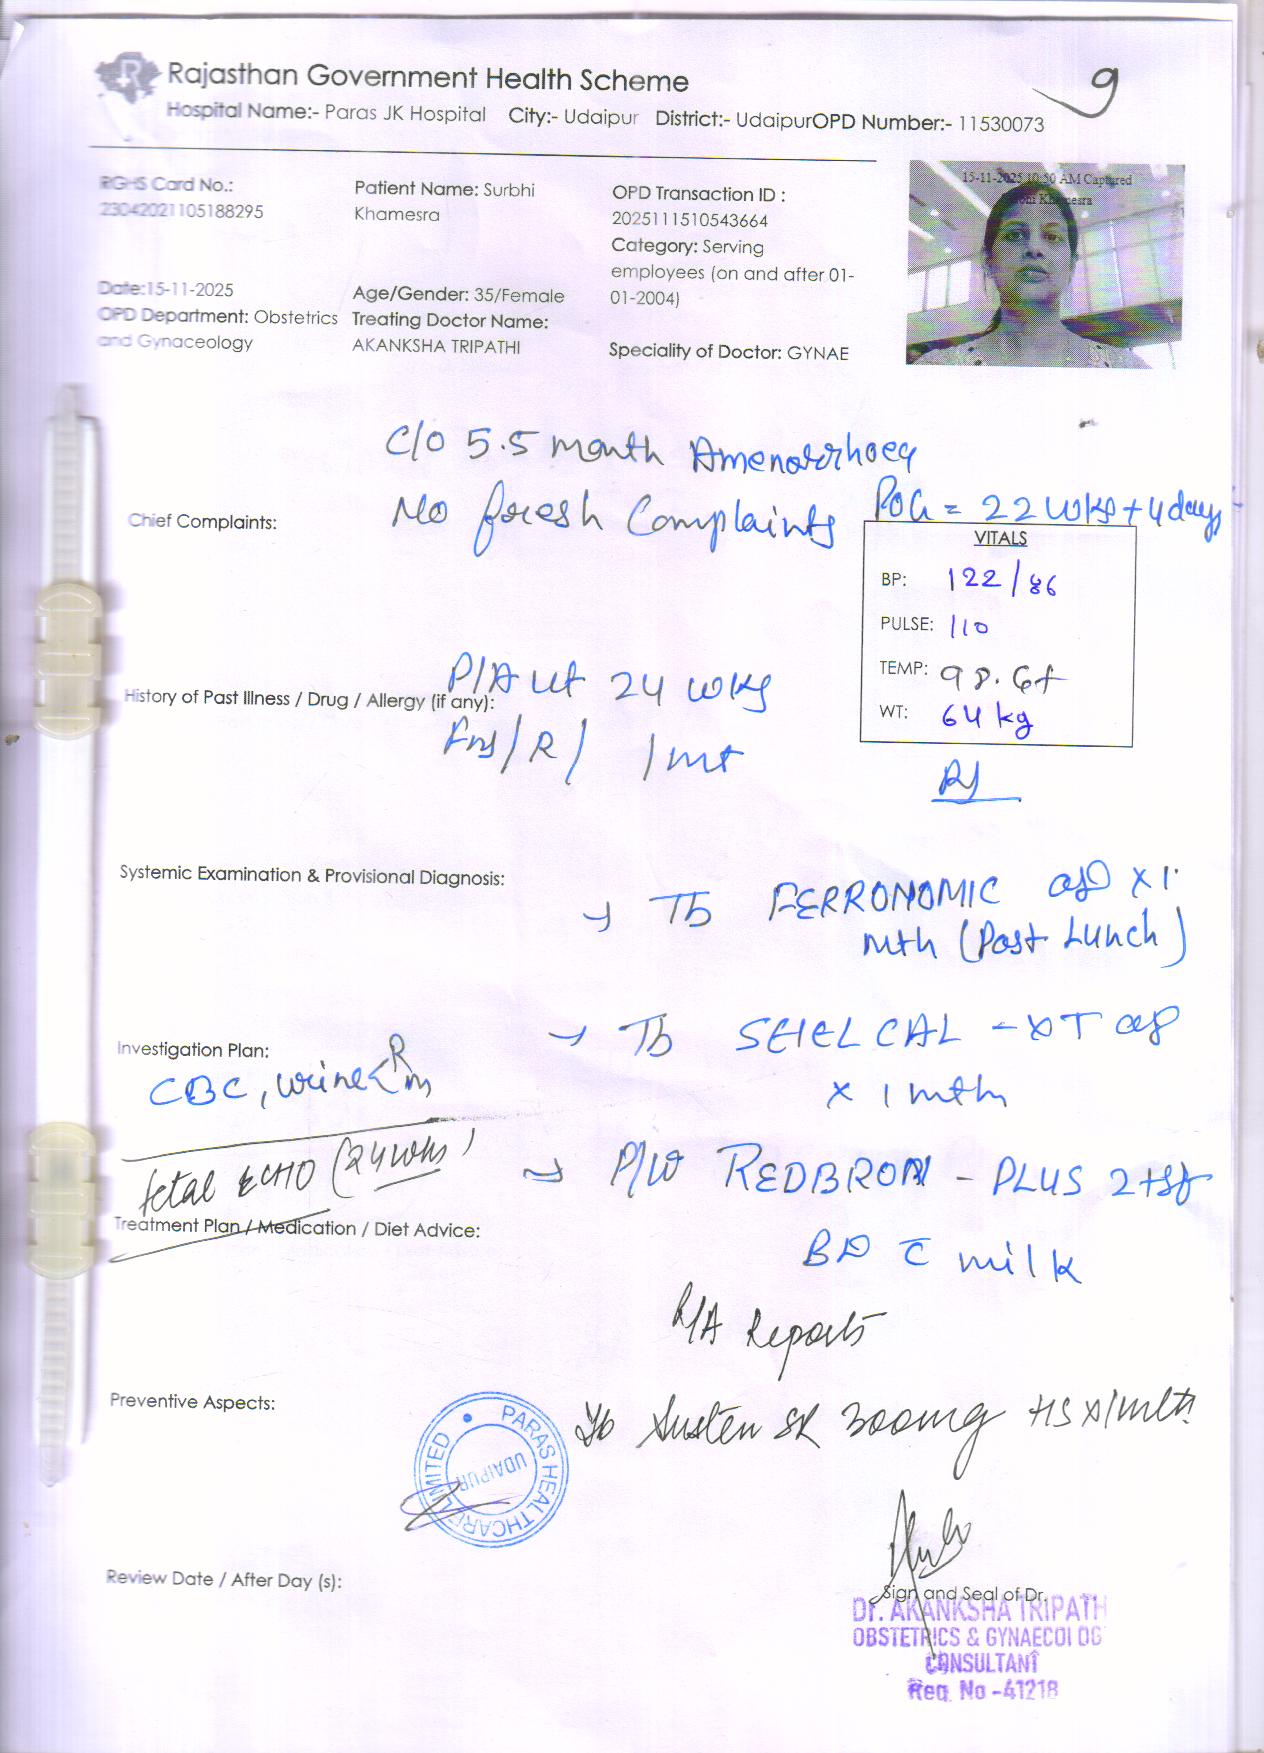 Rajasthan Government Health Scheme
9
Hospital Name:- Paras JK Hospital City:- Udaipur District:- UdaipurOPD Number:- 11530073
RGHS Card No.:
23042021105188295
Patient Name: Surbhi
Khamesra
OPD Transaction ID :
2025111510543664
Category: Serving
employees (on and after 01-
01-2004)
15-11-2025 10:50 AM Captured
Khamesra
Date:15-11-2025
OPD Department: Obstetrics
and Gynaceology
Age/Gender: 35/Female
Treating Doctor Name:
AKANKSHA TRIPATHI
Speciality of Doctor: GYNAE
C/O 5.5 month Amenorrhoea
Chief Complaints:
No fresh Complaints
POG = 22 wks + 4 days
VITALS
BP: 122/86
PULSE: 110
TEMP: 98.6f
WT: 64 kg
History of Past Illness / Drug / Allergy (if any):
P/A ut 24 wks
/R/ 1 mt
Systemic Examination & Provisional Diagnosis:
Tb FERRONOMIC OD x 1
mth (Post Lunch)
Investigation Plan:
CBC, urine < R
m
Tb SHELCAL - XT OD
x 1 mth
fetal ECHO (24 wks)
P/W REDBRON - PLUS 2 tsf
BD c̄ milk
Treatment Plan / Medication / Diet Advice:
R/A Reports
Preventive Aspects:
Tb Susten SR 300mg HS x 1 mth
PARAS HEALTHCARE LIMITED
UDAIPUR
Review Date / After Day (s):
Sign and Seal of Dr.
Dr. AKANKSHA TRIPATH
OBSTETRICS & GYNAECOLOG
CONSULTANT
Reg. No -41218